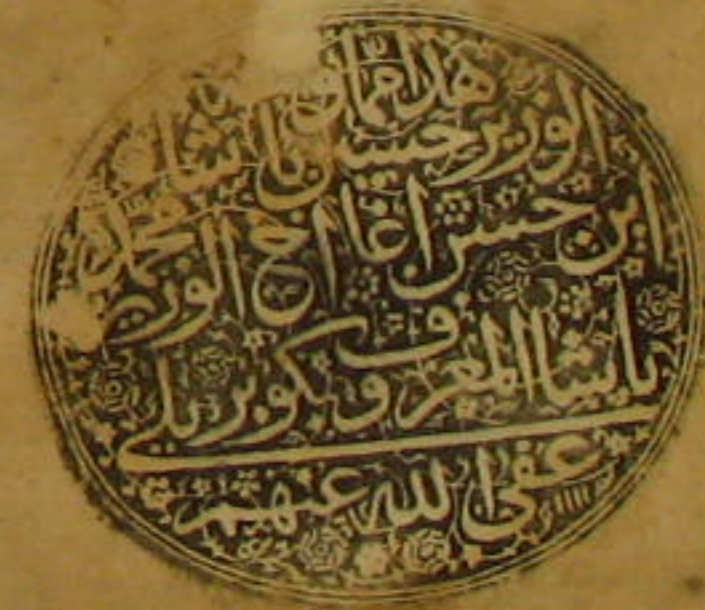 هذا مما
الوزير حسين باشا
ابن حسن اغا اخ الوزير محمد
باشا المعروف بكوبريلي
عفى الله عنهم ١١١١